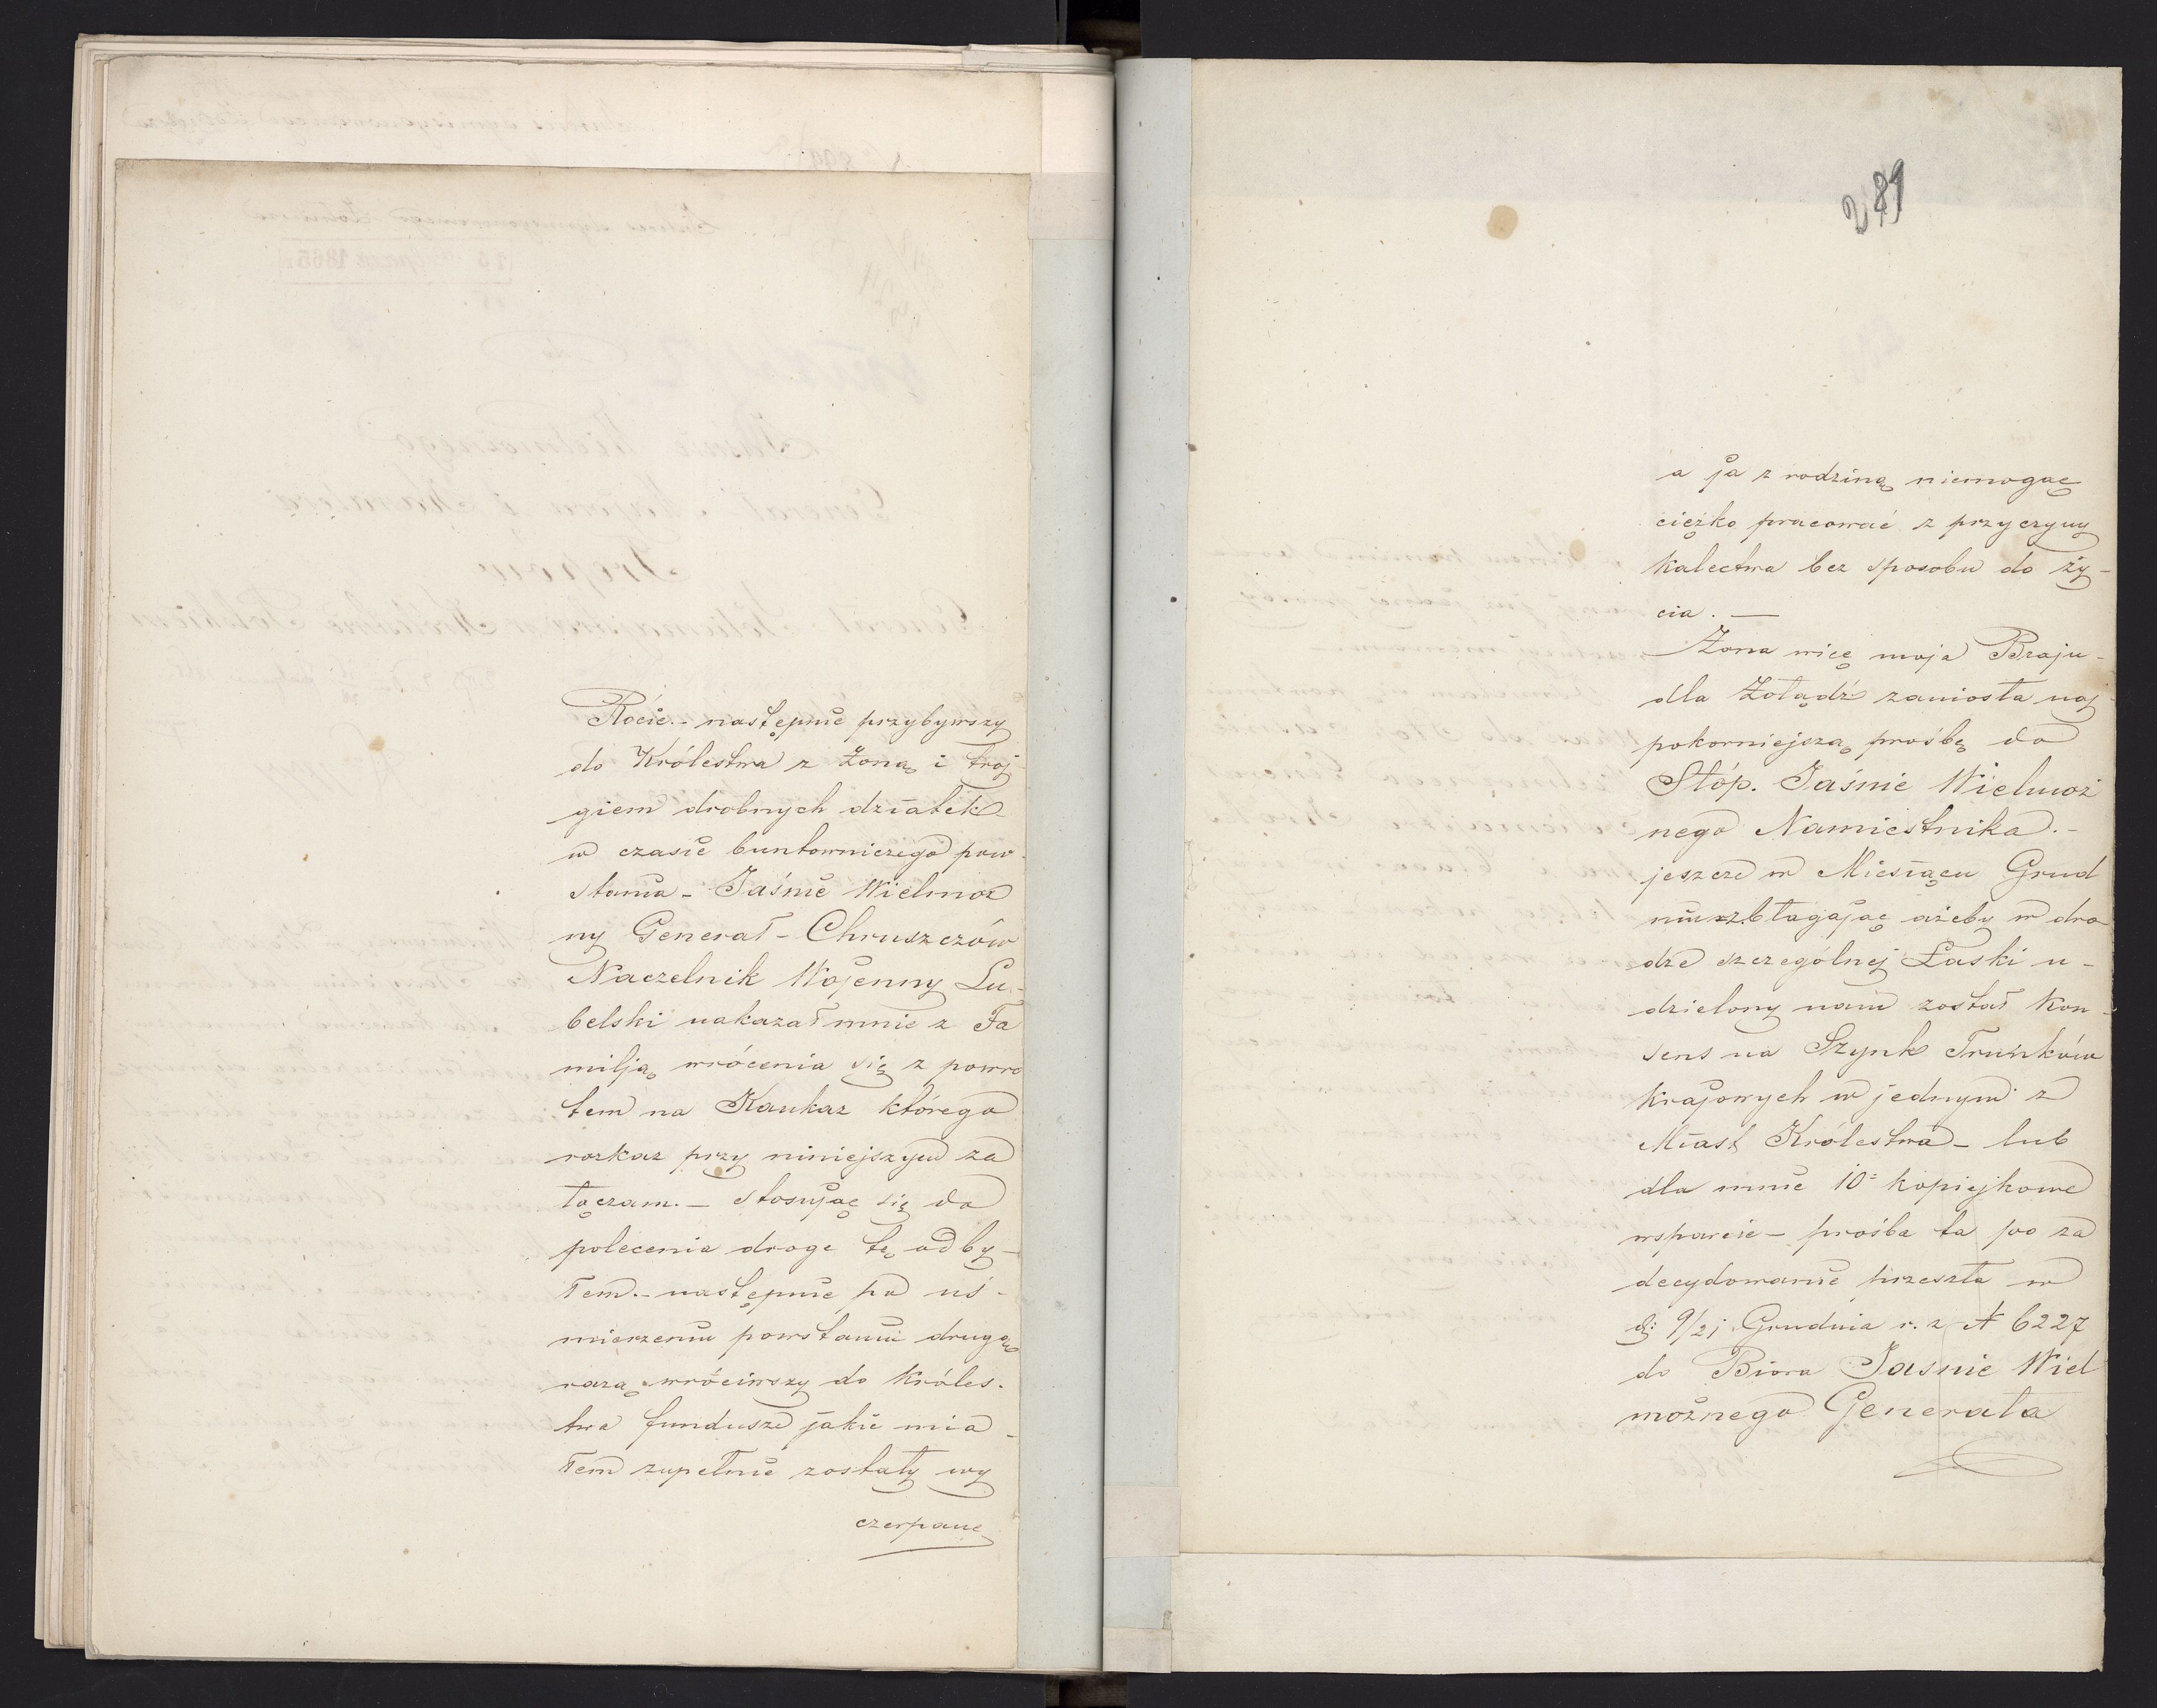 Rócie. – następnie przybywszy
do Królestwa z Żoną i troj
giem drobnych dziatek
w czasie buntowniczego pow
stania – Jaśnie Wielmoż
ny Generał – Chruszczów
Naczelnik Wojenny Lu-
belski nakazał mnie z Fa
milją wrócenia się z powro
tem na Kaukaz którego
rozkaz przy niniejszym za
łączam. – Stosując się do
polecenia drogę tę odby-
łem. – następnie po uś-
mierzeniu powstania drugą
razą wróciwszy do Króles-
twa fundusze jakie mia-
łem zupełnie zostały wy
czerpane
289
a ja z rodziną niemogąc
ciężko pracować z przyczyny
kalectwa bez sposobu do ży-
cia. –
Żona więc moja Braju-
dla Żołądź zaniosła naj
pokorniejszą prośbę do
Stóp. Jaśnie Wielmoż
nego Namiestnika. –
jeszcze w Miesiącu Grud
niu błagając ażeby w dro
dze szczególnej Łaski u-
dzielony nam został Kon-
sens na Szynk Trunków
Krajowych w jednym z
Miast Królestwa – lub
dla mnie 10 = kopiejkowe
wsparcie – prośba ta po za
decydowanie przeszła w
d: 9/21 Grudnia r. z № 6227
do Biora Jaśnie Wiel
możnego Generała